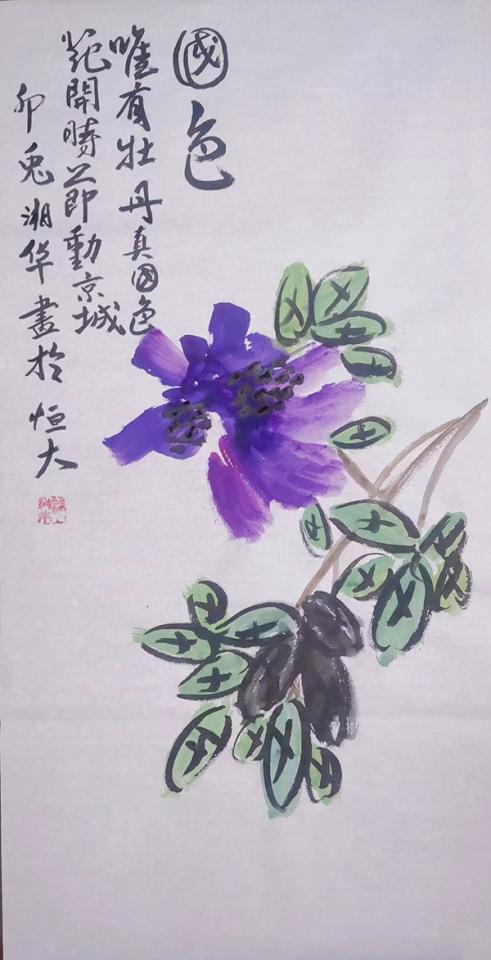 國色
唯有牡丹真国色
花開時節動京城
卯兔湘华畫於恒大